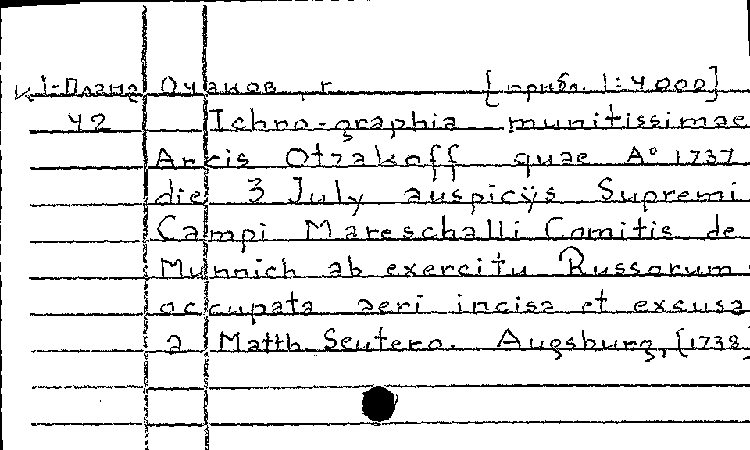 К1-Планы Очаков, г. [прибл. 1:4000]
42 Ichno-graphia munitissimae
Arcis Otzakoff quae A° 1737
die 3 July auspicÿs Supremi
Campi Mareschalli Comitis de
Munnich ab exercitu Russorum
occupata aeri incisa et excusa
a Matth Seutero. Augsburg, [1738